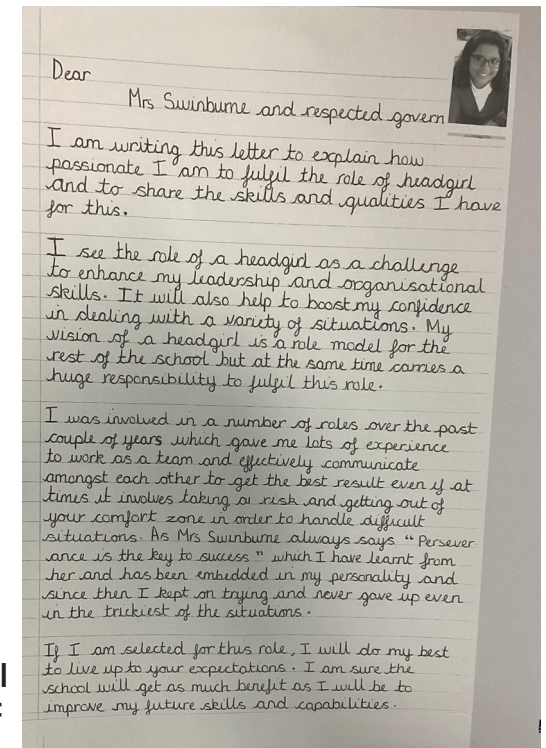 Dear
Mrs Swinburne and respected govern
I am writing this letter to explain how
passionate I am to fulfil the role of headgirl
and to share the skills and qualities I have
for this.
I see the role of a headgirl as a challenge
to enhance my leadership and organisational
skills. It will also help to boost my confidence
in dealing with a variety of situations. My
vision of a headgirl is a role model for the
rest of the school but at the same time carries a
huge responsibility to fulfil this role.
I was involved in a number of roles over the past
couple of years which gave me lots of experience
to work as a team and effectively communicate
amongst each other to get the best result even if at
times it involves taking a risk and getting out of
your comfort zone in order to handle difficult
situations. As Mrs Swinburne always says "Persever
ance is the key to success" which I have learnt from
her and has been embedded in my personality and
since then I kept on trying and never gave up even
in the trickiest of the situations.
If I am selected for this role, I will do my best
to live up to your expectations. I am sure the
school will get as much benefit as I will be to
improve my future skills and capabilities.